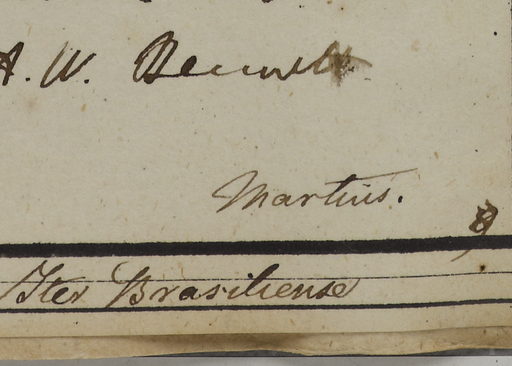 A. W. Bennett
Martius.
Iter Brasiliense